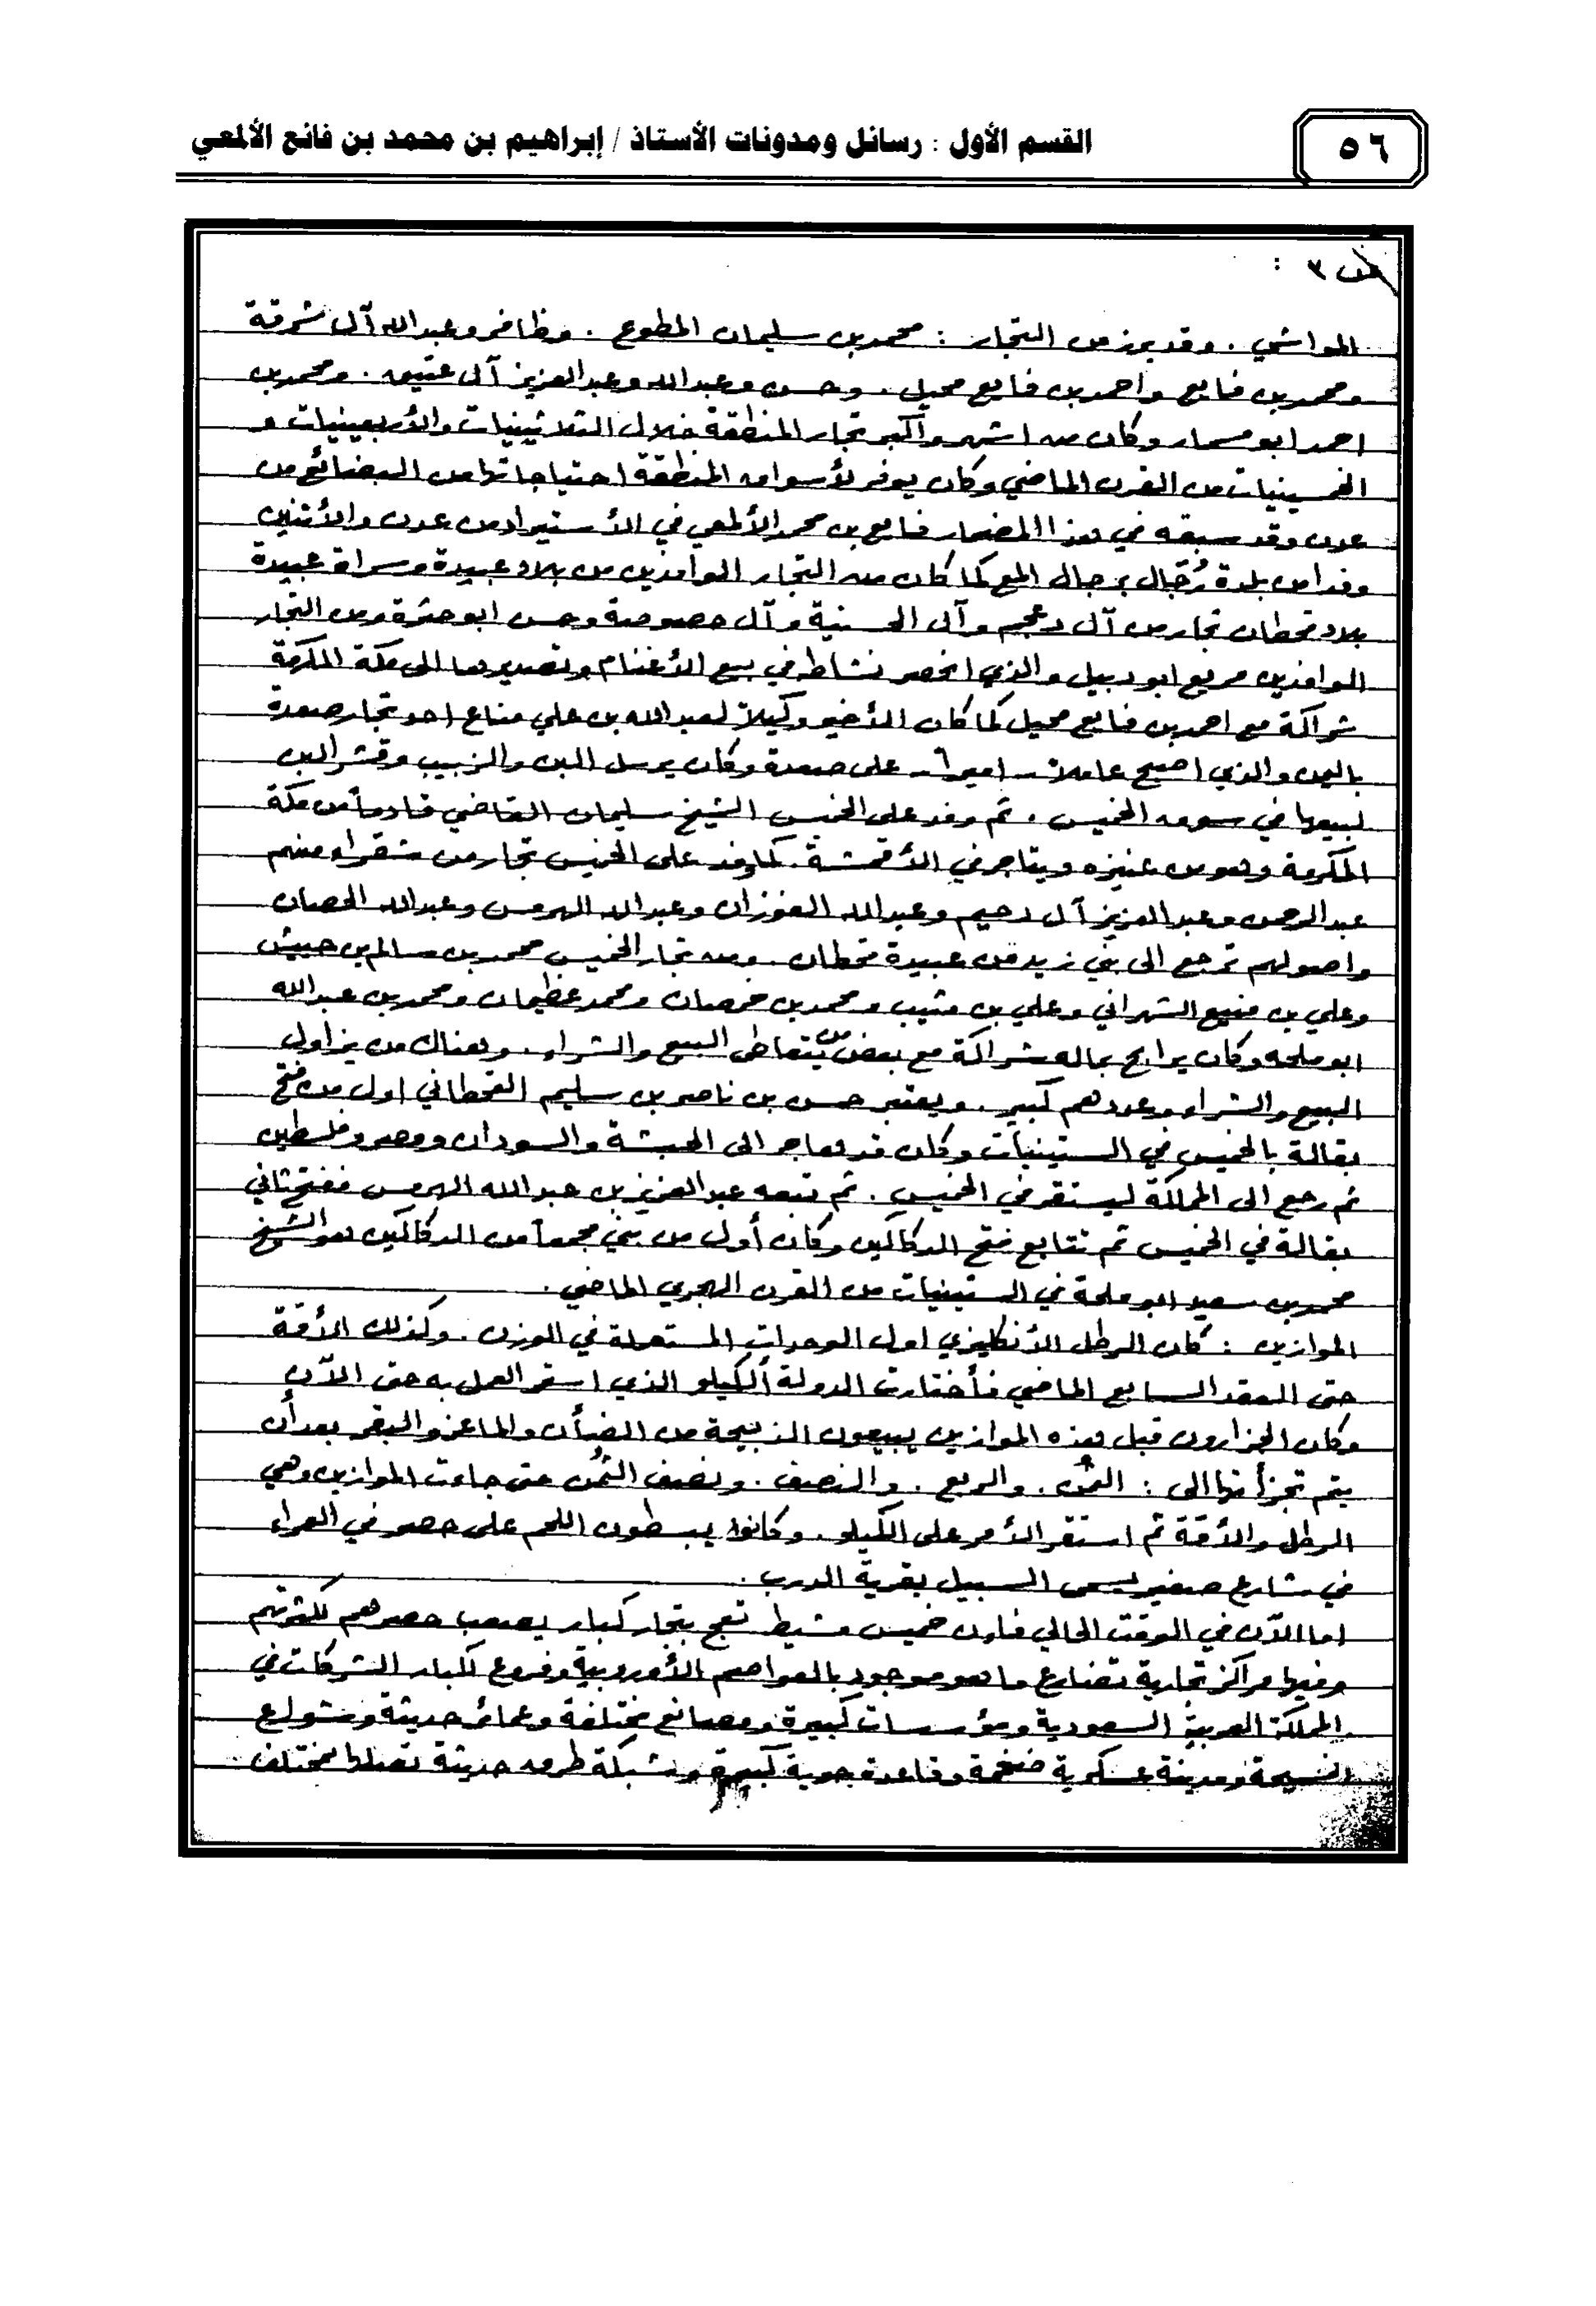 ٥٦
القسم الأول : رسائل ومدونات الأستاذ / إبراهيم بن محمد بن فائع الألمعي
ص ٣ :
المواشي . وقد برز من التجار : محمد بن سليمان المطوع . وظافر وعبدالله آل شرقة
ومحمد بن فايع واحمد بن فايع محيل . وحسن وعبدالله وعبدالعزيز آل عتيق . ومحمد بن
احمد ابو مسمار وكان من اشهر وأكبر تجار المنطقة خلال الثلاثينيات والأربعينيات و
الخمسينيات من القرن الماضي وكان يوفر لأسواق المنطقة احتياجاتها من البضائع من
عدن وقد سبقه في هذا المضمار فايع بن محمد الألمعي في الأستيراد من عدن والأثنين
وفدا من بلدة رُجال برجال المع كما كان من التجار الوافدين من بلاد عبيدة وسراة عبيدة
بلاد قحطان تجار من آل دعجم وآل الحسنية وآل حصوصة وحسن ابو حثرة ومن التجار
الوافدين مريع ابو دبيل والذي انحصر نشاطه في بيع الأغنام وتصديرها الى مكة المكرمة
شراكة مع احمد بن فايع محيل كما كان الأخير وكيلاً لعبدالله بن علي مناع احد تجار صعدة
باليمن والذي اصبح عاملاً - اميراً - على صعدة وكان يرسل البن والزبيب وقشر البن
لبيعها في سوق الخميس . ثم وفد على الخميس الشيخ سليمان القاضي قادماً من مكة
المكرمة وهو من عنيزه ويتاجر في الأقمشة . كما وفد على الخميس تجار من شقراء منهم
عبدالرحمن وعبدالعزيز آل دحيم وعبدالله الفوزان وعبدالله الهرمس وعبدالله الحصان
واصولهم ترجع الى بني زيد من عبيدة قحطان . ومن تجار الخميس محمد بن سالم بن حبيش
وعلي بن منيع الشهراني وعلي بن مشبب ومحمد بن خرصان ومحمد عظيمان ومحمد بن عبدالله
ابو ملحه وكان يرابح بماله شراكة مع بعض من يتعاطى البيع والشراء . وهناك من يزاول
البيع والشراء وعددهم كبير . ويعتبر حسن بن ناصر بن سليم القحطاني اول من فتح
بقالة بالخميس في الستينيات وكان قد هاجر الى الحبشة والسودان ومصر وفلسطين
ثم رجع الى المملكة ليستقر في الخميس . ثم تبعه عبدالعزيز بن عبدالله الهرمس ففتح ثاني
بقالة في الخميس ثم تتابع فتح الدكاكين وكان أول من بني مجمعاً من الدكاكين هو الشيخ
محمد بن سعيد ابو ملحة في الستينيات من القرن الهجري الماضي .
الموازين : كان الرطل الأنكليزي اول الوحدات المستعملة في الوزن . وكذلك الأقة
حتى العقد السابع الماضي فأختارت الدولة الكيلو الذي استمر العمل به حتى الآن
وكان الجزارون قبل هذه الموازين يبيعون الذبيحة من الضأن والماعز والبقر بعد أن
يتم تجزأتها الى : الثمن . والربع . والنصف . ونصف الثمُن حتى جاءت الموازين وهي
الرطل والأقة ثم استقر الأمر على الكيلو . وكانوا يبسطون اللحم على حصر في العراء
في شارع صغير يسمى السبيل بقرية الدرب .
اما الآن في الوقت الحالي فاءن خميس مشيط تعج بتجار كبار يصعب حصرهم لكثرتهم
وفيها مراكز تجارية تضارع ما هو موجود بالعواصم الأوروبية وفروع لكبار الشركات في
المملكة العربية السعودية ومؤسسات كبيرة ومصانع مختلفة وعمائر حديثة وشوارع
فسيحة ومدينة عسكرية ضخمة وقاعدة جوية كبيرة وشبكة طرق حديثة تصلها بمختلف